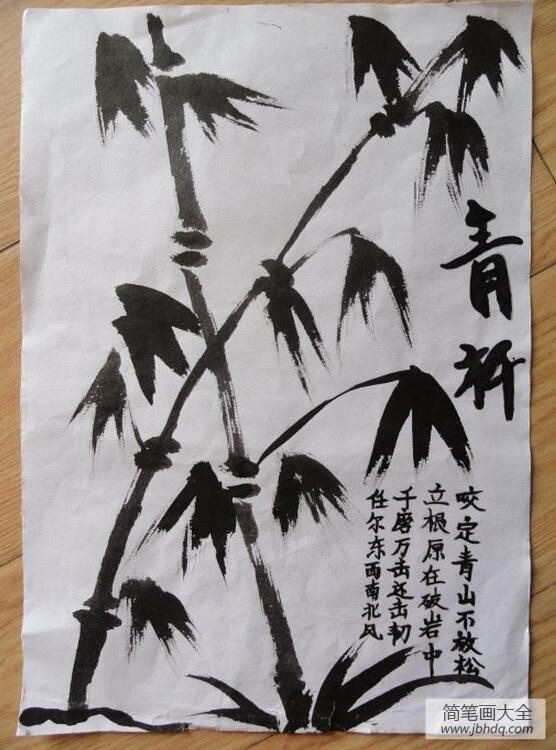 青
咬定青山不放松
立根原在破岩中
千磨万击还击韧
任尔东西南北风
简笔画大全
www.jbhdq.com